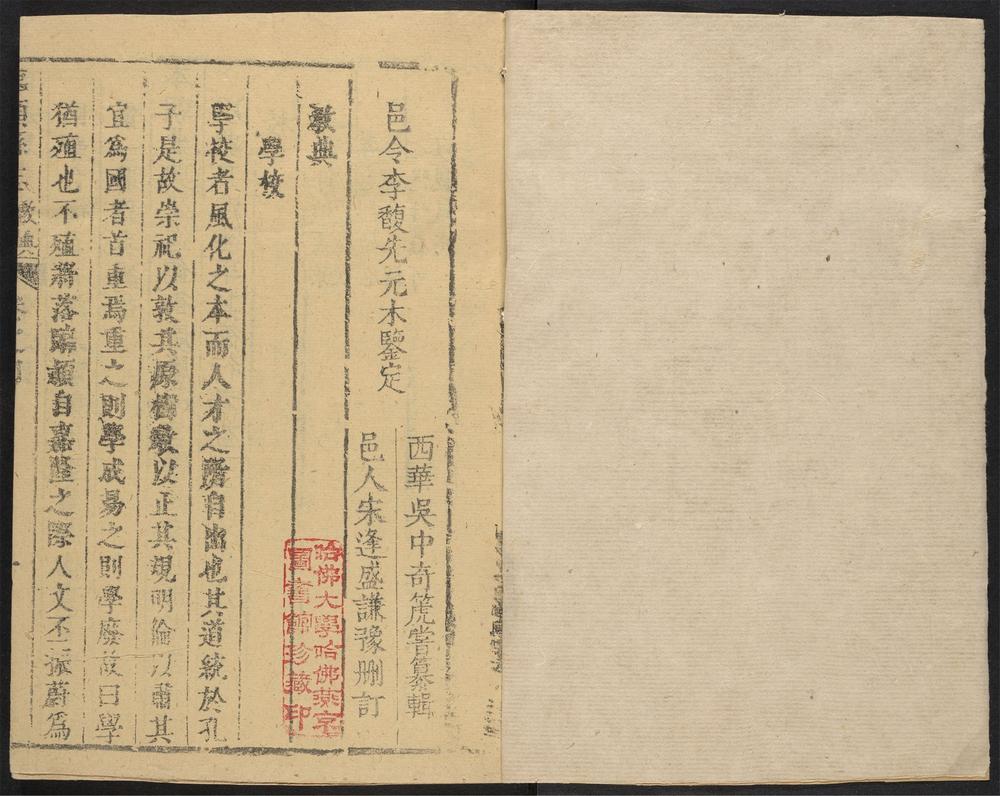 邑令李馥先元木鑒定
西華吳中奇箎嘗纂輯
邑人朱逢盛謙豫删訂
教典
學校
學校者風化之本而人才之所自出也其道統於孔
子是故崇祀以敦其原樹教以正其規明倫以肅其
宜爲國者首重焉重之則學成易之則學廢故曰學
猶殖也不殖將落臨潁自嘉隆之際人文丕振蔚爲
教典
卷之四
哈佛大學哈佛燕京
圖書館珍藏印